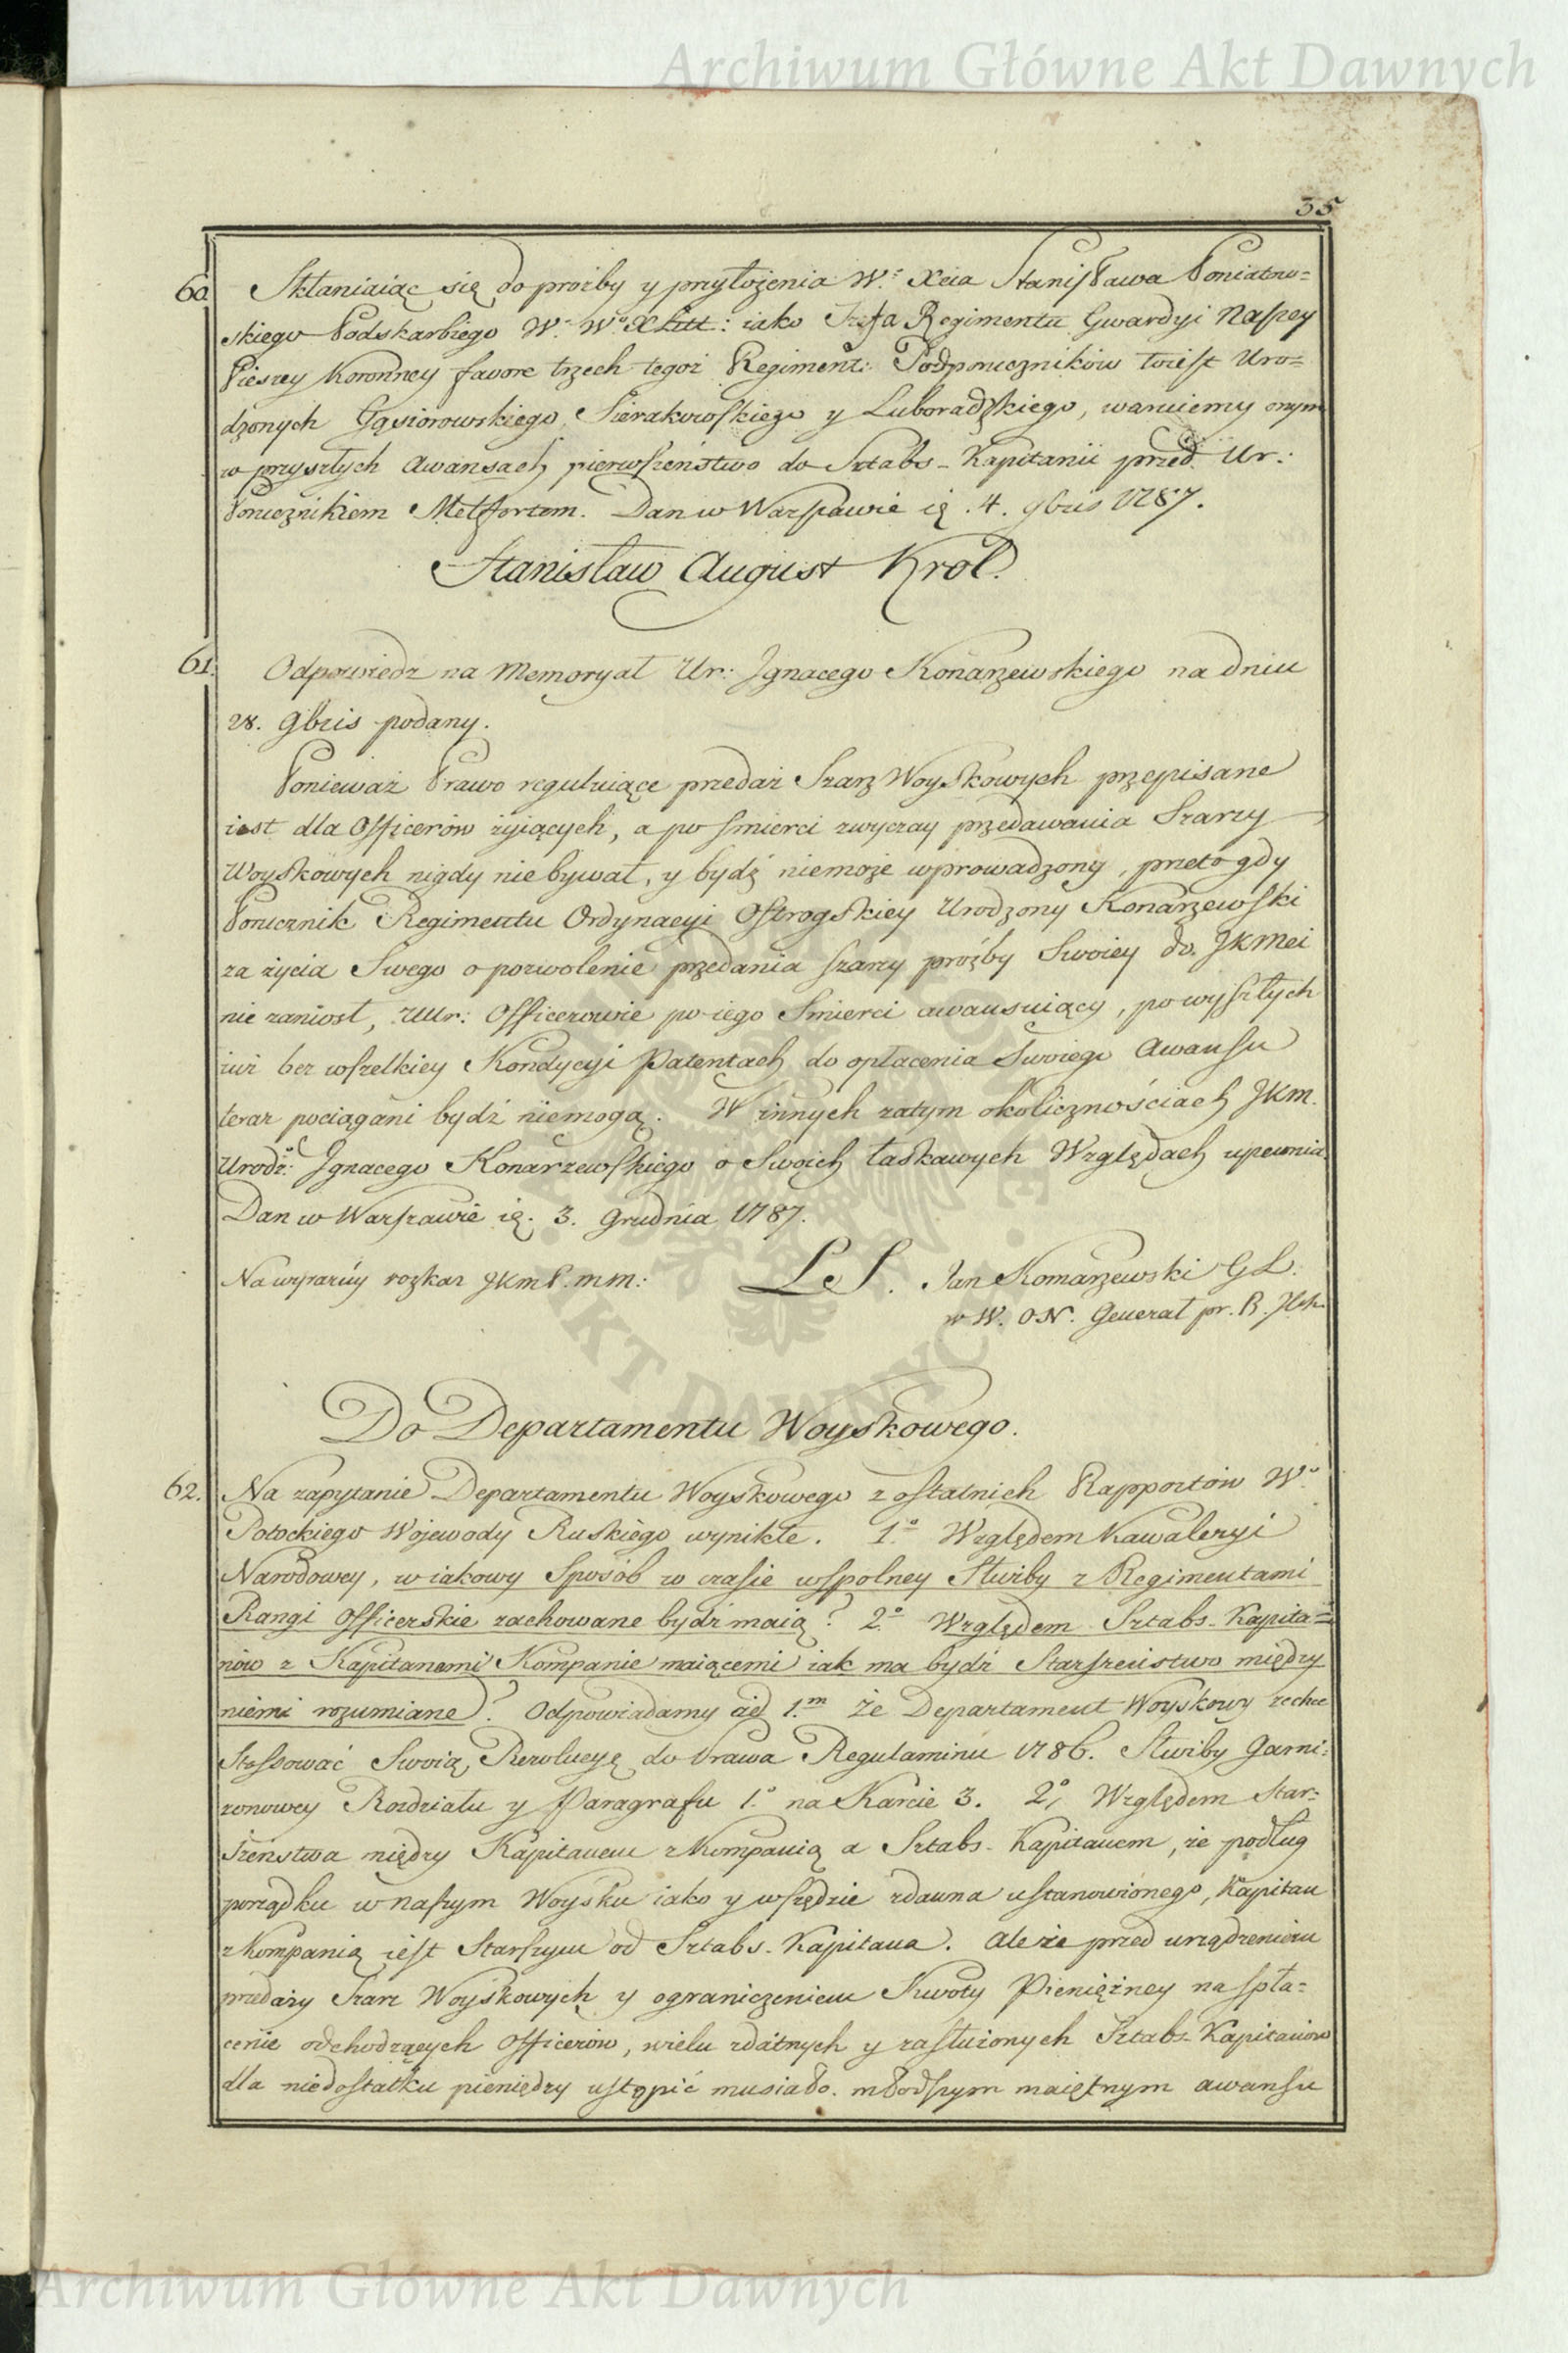 Archiwum Główne Akt Dawnych
35
60. Skłaniaiąc się do prozby y przyłożenia W.° Xcia Stanisława Poniatow=
skiego Podskarbiego W.° W.° X Litt: iako Szefa Regimentu Gwardyi Naszey
Pieszey Koronney favore trzech tegoż Regiment: Podporuczników toiest Uro=
dzonych Gąsiorowskiego, Sierakowskiego y Luboradzkiego, waruiemy onym
w przyszłych Awansach pierwszeństwo do Sztabs-Kapitanii przed Ur:
Porucznikiem Metzfortem. Dan w Warszawie ię. 4. 9bris 1787.
Stanisław August Krol.
61. Odpowiedz na Memoryał Ur: Jgnacego Konarzewskiego na dniu
28. 9bris podany.
Ponieważ Prawo reguluiące przedaż Szarż Woyskowych przepisane
iest dla Officerów żyiących, a po smierci zwyczay przedawania Szarzy
Woyskowych nigdy nie bywał, y bydź niemoże wprowadzony, przeto gdy
Porucznik Regimentu Ordynacyi Ostrogskiey Urodzony Konarzewski
za życia Swego o pozwolenie przedania szarzy próźby Swoiey do JKMci
nie zaniosł, UUr: Officerowie po iego Smierci awansuiący, po wyszłych
iuż bez wszelkiey Kondycyi Patentach do opłacenia Swoiego Awansu
teraz pociągani bydź niemogą. W innych zatym okolicznościach JKM.
Urodz: Jgnacego Konarzewskiego o Swoich łaskawych Względach upewnia.
Dan w Warszawie ię. 3. Grudnia 1787.
Na wyraźny rozkaz JKM P. mm: LS. Jan Komarzewski GL:
w W. O N. Generał pr. B. JKM.
Do Departamentu Woyskowego.
62. Na zapytanie Departamentu Woyskowego z ostatnich Rapportów W.°
Potockiego Wojewody Ruskiego wynikłe. 1.° Względem Kawaleryi
Narodowey, w iakowy Sposób w czasie wspolney Służby z Regimentami
Rangi Officerskie zachowane bydź maią? 2.° Względem Sztabs-Kapita=
nów z Kapitanami Kompanie maiącemi iak ma bydź Starszeństwo między
niemi rozumiane? Odpowiadamy ad 1.m Że Departament Woyskowy zechce
Stossować Swoią Rezolucyę do Prawa Regulaminu 1786. Służby Garni:
zonowey Rozdziału y Paragrafu 1.° na Karcie 3. 2.° Względem Star:
szeństwa między Kapitanem z Kompanią a Sztabs-Kapitanem, że podług
porządku w naszym Woysku iako y wszędzie zdawna ustanowionego, Kapitan
z Kompanią iest Starszym od Sztabs-Kapitana. Ale że przed urządzeniem
przedaży Szarz Woyskowych y ograniczeniem Kwoty Pieniężney na spła=
cenie odchodzących Officerów, wielu zdatnych y zasłużonych Sztabs-Kapitanów
dla niedostatku pieniędzy ustąpić musiało młodszym maiętnym awansu
Archiwum Główne Akt Dawnych